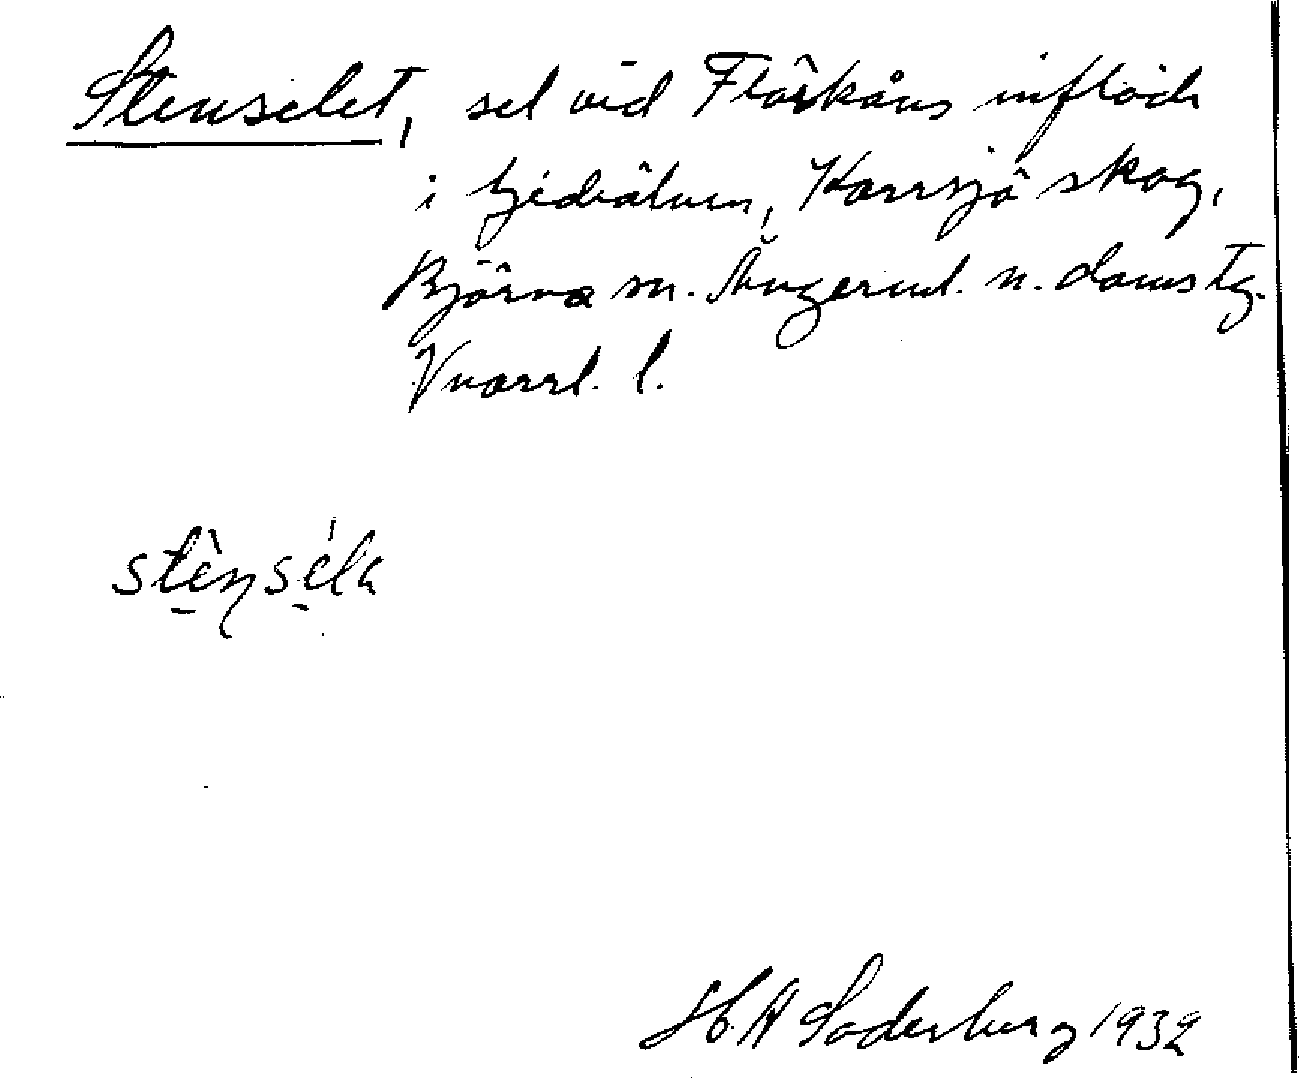 Stenselet, sel vid Flärkåns inflöde
i Gideälven, Karrsjö skog,
Björna sn. Ångerml. n. domstg.
Vnorrl. l.
stènséla
H.A Söderberg 1932